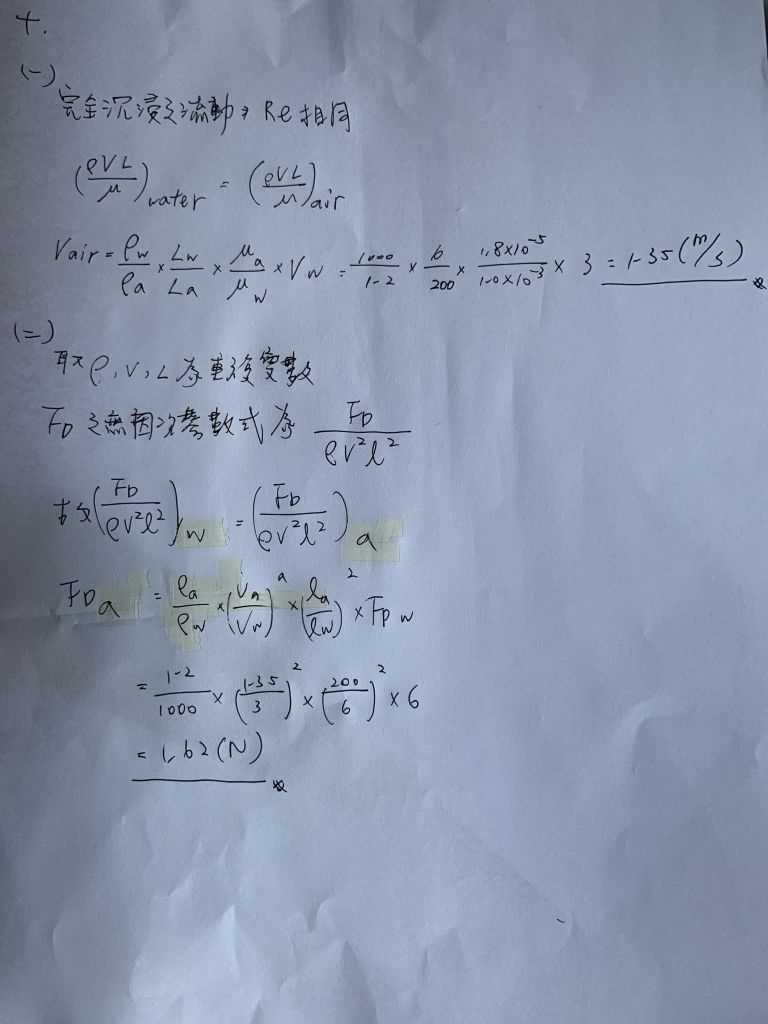 十.
(一)
完全沉浸之流動⇒Re相同
(ρVL/μ)water = (ρVL/μ)air
Vair = ρw/ρa × Lw/La × μa/μw × Vw = 1000/1.2 × 6/200 × 1.8×10^-5/1.0×10^-3 × 3 = 1.35 (m/s)
(二)
取ρ, V, L為重複變數
FD之無因次參數式為 FD/ρv²l²
故(FD/ρv²l²)w = (FD/ρv²l²)a
FDa = ρa/ρw × (Va/Vw)^a × (la/lw)² × FDw
= 1.2/1000 × (1.35/3)² × (200/6)² × 6
= 1.62 (N)